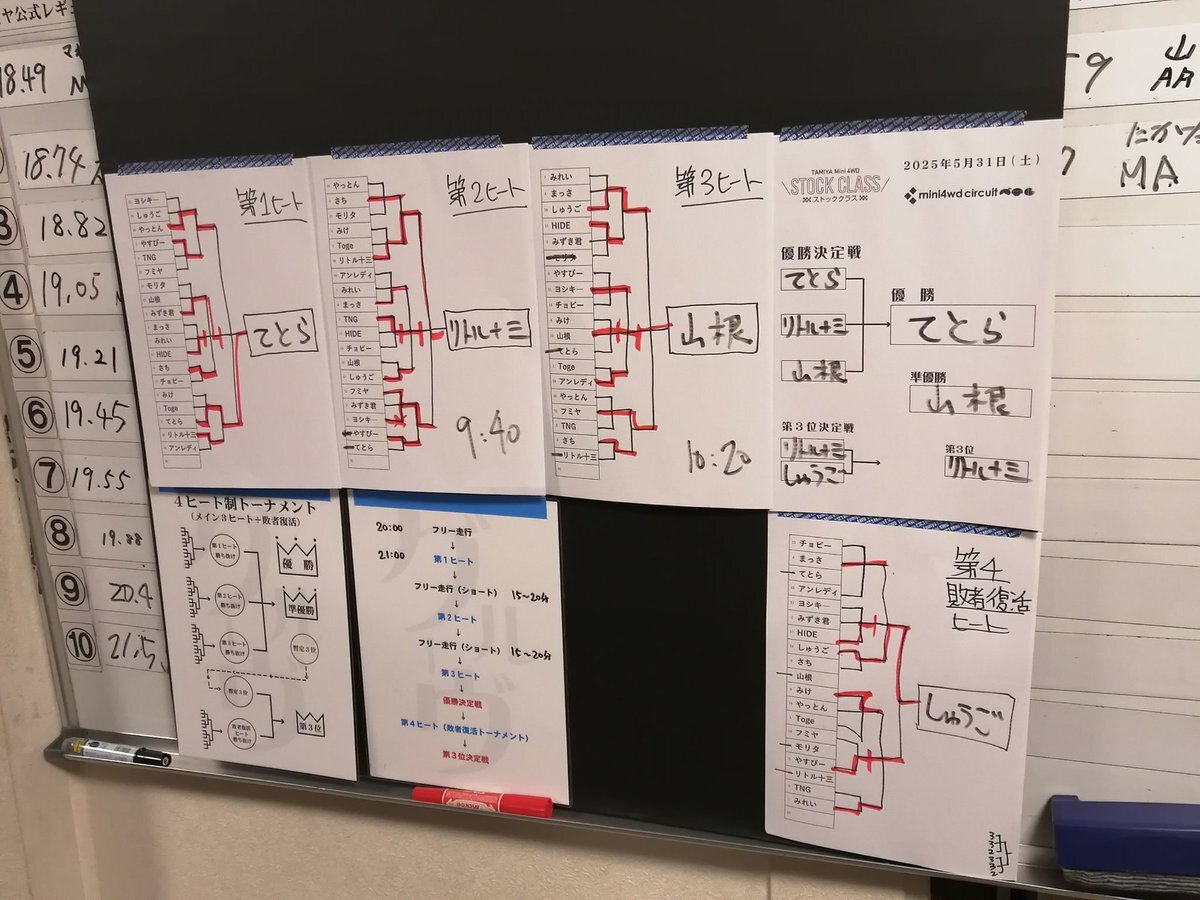 ヤ公式レギ
18.49
18.74
18.82
19.05
19.21
19.45
19.55
19.88
20.4
21.5
③
④
⑤
⑥
⑦
⑧
⑨
⑩
第1ヒート
ヨシキー
しゅうご
やっとん
やすぴー
TNG
フミヤ
モリタ
山根
みずき君
まっさ
みれい
HIDE
さち
チョビー
みけ
Toge
てとら
リトル十三
アンレディ
てとら
第2ヒート
やっとん
さち
モリタ
みけ
Toge
リトル十三
アンレディ
みれい
まっさ
TNG
HIDE
チョビー
山根
しゅうご
フミヤ
みずき君
ヨシキー
やすぴー
てとら
リトル十三
9:40
第3ヒート
みれい
まっさ
しゅうご
HIDE
みずき君
モリタ
やすぴー
ヨシキー
チョビー
みけ
山根
てとら
Toge
アンレディ
やっとん
フミヤ
TNG
さち
リトル十三
山根
10:20
2025年5月31日(土)
TAMIYA Mini 4WD
STOCK CLASS
ストッククラス
mini4wd circuit
優勝決定戦
てとら
リトル十三
山根
優 勝
てとら
準優勝
山根
第3位決定戦
リトル十三
しゅうご
第3位
リトル十三
4ヒート制トーナメント
(メイン3ヒート+敗者復活)
第1ヒート
勝ち抜け
第2ヒート
勝ち抜け
第3ヒート
勝ち抜け
優 勝
準優勝
暫定3位
暫定3位
敗者復活
ヒート
勝ち抜け
第3位
20:00 フリー走行
↓
21:00 第1ヒート
↓
フリー走行(ショート) 15~20分
↓
第2ヒート
↓
フリー走行(ショート) 15~20分
↓
第3ヒート
↓
優勝決定戦
↓
第4ヒート(敗者復活トーナメント)
↓
第3位決定戦
第4
敗者復活
ヒート
チョビー
まっさ
てとら
アンレディ
ヨシキー
みずき君
HIDE
しゅうご
さち
山根
みけ
やっとん
Toge
フミヤ
モリタ
やすぴー
リトル十三
TNG
みれい
しゅうご
3
3
2
3
3
2
山
AA
たかた
MA